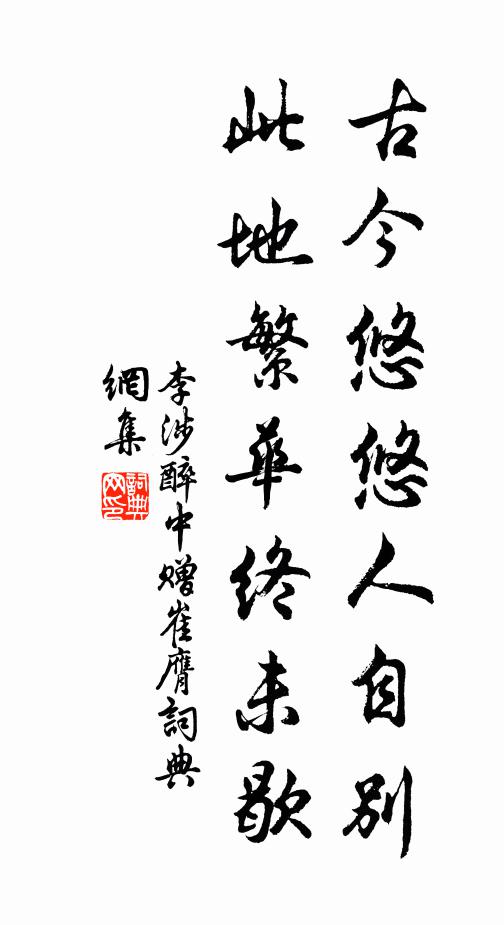 古今悠悠人自別
此地繁華終未歇
李涉醉中贈崔膺詞典
網集
詞典網印